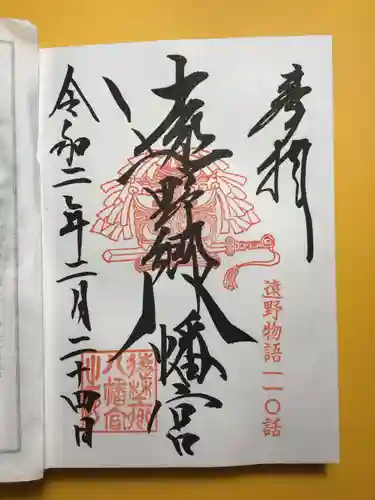 奉拝
遠野物語一一〇話
遠野郷八幡宮
令和二年十二月二十四日
遠野郷
八幡宮